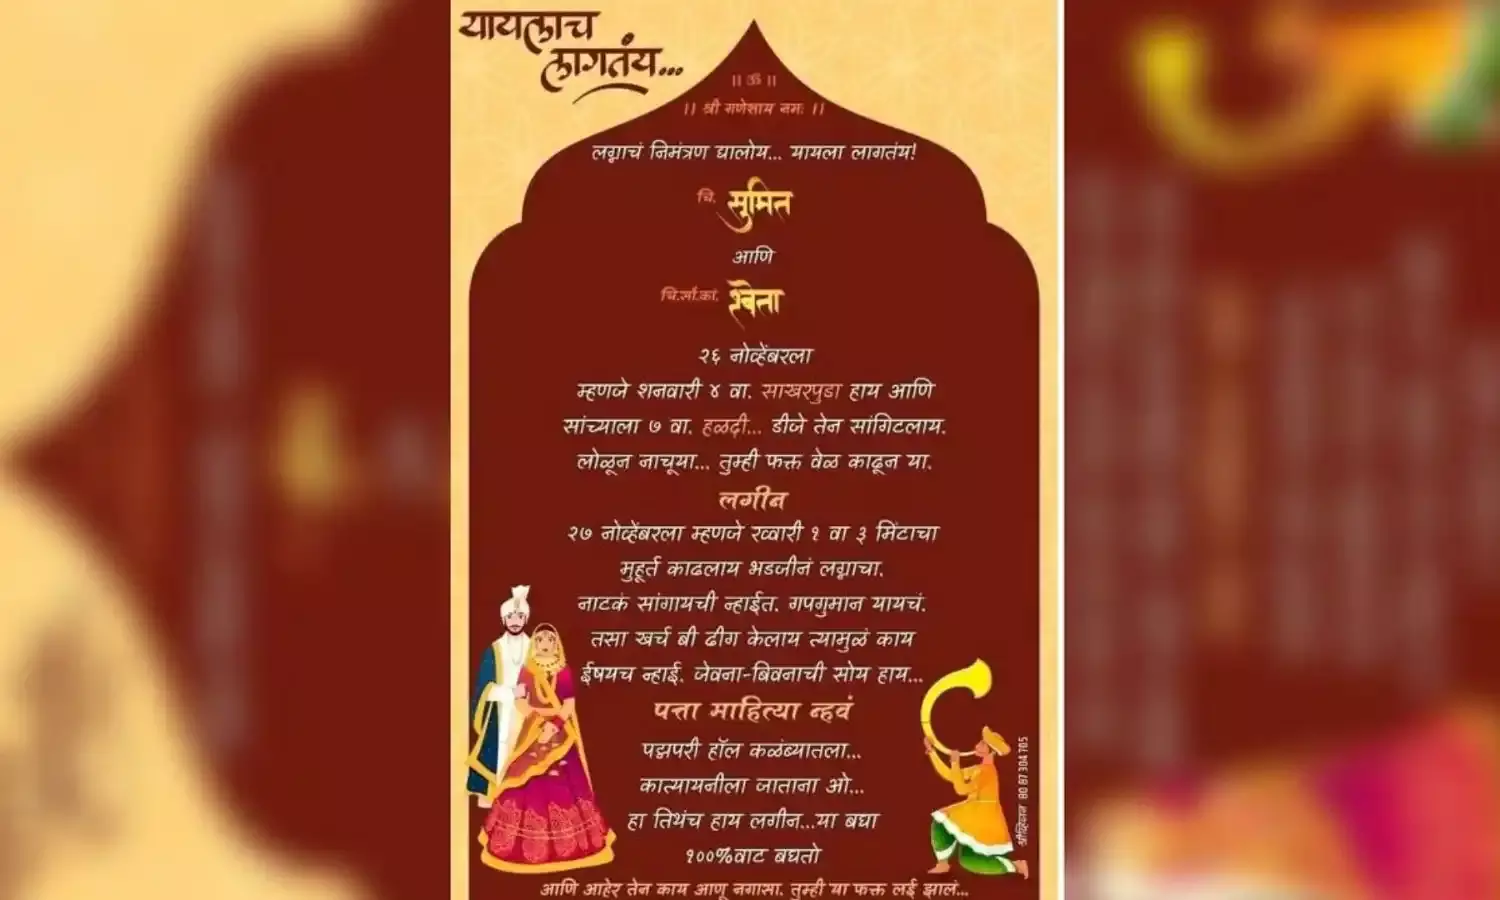 यायलाच
लागतंय...
|| ॐ ||
|| श्री गणेशाय नमः ||
लग्नाचं निमंत्रण द्यालोय... यायला लागतंय!
चि. सुमित
आणि
चि.सौ.कां. श्वेता
२६ नोव्हेंबरला
म्हणजे शनवारी ४ वा. साखरपुडा हाय आणि
सांच्याला ७ वा. हळदी... डीजे तेन सांगिटलाय.
लोळून नाचूया... तुम्ही फक्त वेळ काढून या.
लगीन
२७ नोव्हेंबरला म्हणजे रव्वारी १ वा ३ मिंटाचा
मुहूर्त काढलाय भडजीनं लग्नाचा.
नाटकं सांगायची न्हाईत. गपगुमान यायचं.
तसा खर्च बी ढीग केलाय त्यामुळं काय
ईषयच न्हाई. जेवना-बिवनाची सोय हाय...
पत्ता माहित्या न्हवं
पद्मपरी हॉल कळंब्यातला...
कात्यायनीला जाताना ओ...
हा तिथंच हाय लगीन...या बघा
१००%वाट बघतो
आणि आहेर तेन काय आणू नगासा. तुम्ही या फक्त लई झालं...
80 87 304 705